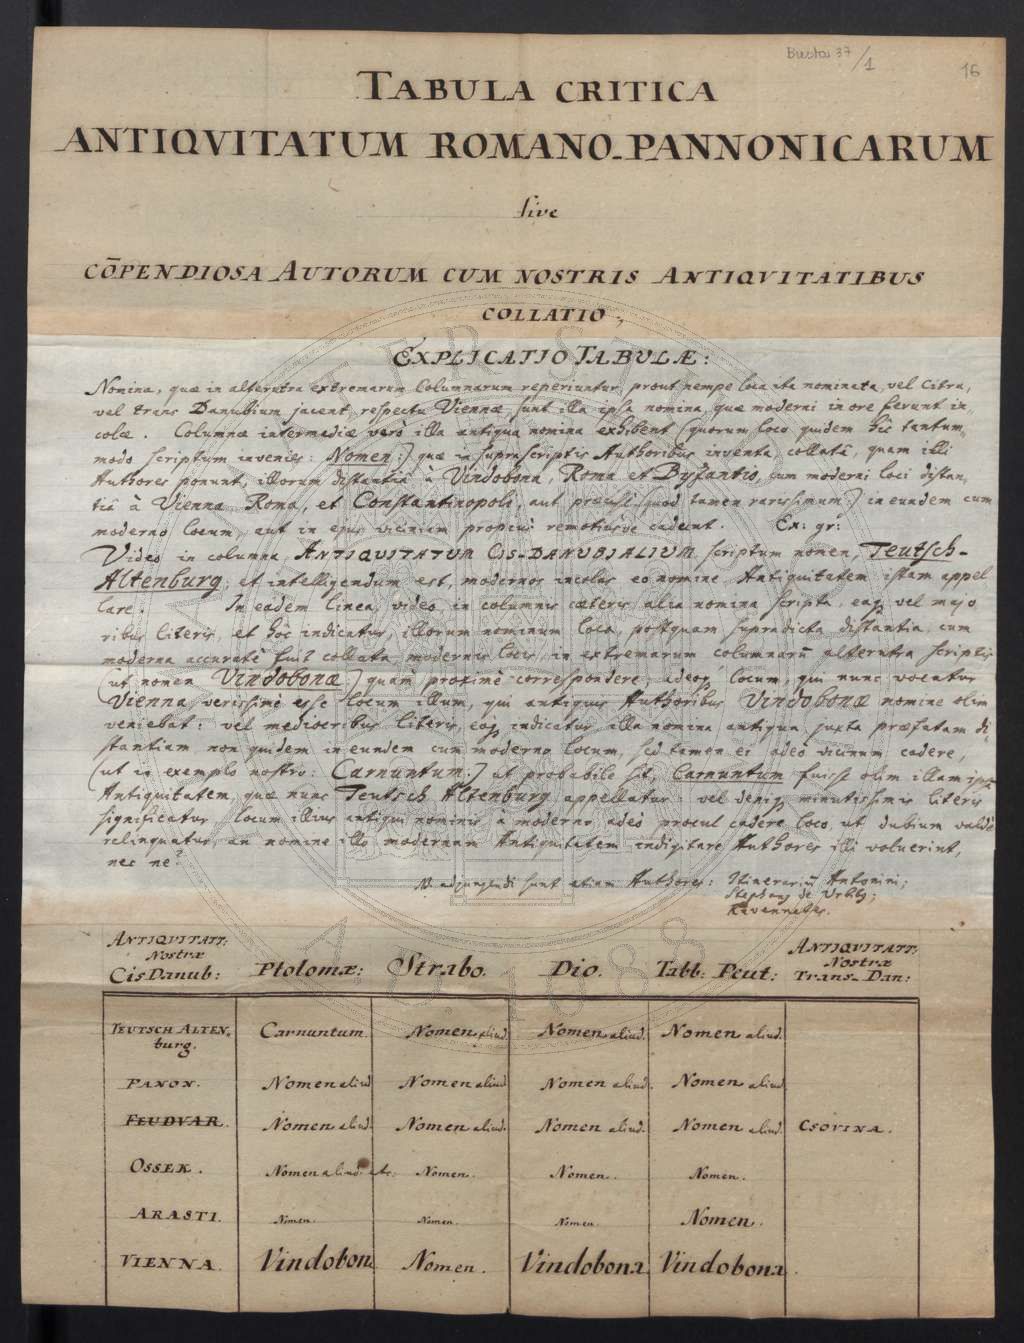 Busta 37/1
16
TABULA CRITICA
ANTIQVITATUM ROMANO-PANNONICARUM
sive
CŌPENDIOSA AUTORUM CUM NOSTRIS ANTIQVITATIBUS
COLLATIO.
EXPLICATIO TABULÆ:
Nomina, quæ in alterutra extremarum Columnarum reperiuntur, prout nempe loca ita nominata vel Citra,
vel trans Danubium jacent, respectu Viennæ, sunt illa ipsa nomina, quæ moderni in ore ferunt in-
colæ. Columnæ intermediæ verò illa antiqua nomina exhibent (quorum loco quidem hîc tantum-
modo scriptum invenies: Nomen:) quæ in suprascriptis Authoribus inventa, collatâ, quam illi
Authores ponunt, illorum distantiâ à Vindobona, Roma et Byzantio, cum moderni loci distan-
tiâ à Vienna Roma, et Constantinopoli, aut præcisè (quod tamen rarissimum) in eundem cum
moderno locum, aut in ejus viciniam propius remotiusve cadent. Ex: gr:
Video in columna, ANTIQUITATUM CIS-DANUBIALIUM scriptum nomen, Teutsch-
Altenburg; et intelligendum est, modernos incolas eo nomine Antiquitatem istam appel
lare. In eadem linea, video in columnis cæteris alia nomina scripta, eaq; vel majo
ribus literis, et hôc indicatur, illorum nominum loca, postquam supradicta distantia cum
moderna accuratè fuit collata, modernis locis, in extremarum columnarū alterutra scriptis
(ut nomen Vindobonæ:) quam proximè correspondere; adeoq; locum, qui nunc vocatur
Vienna, verissimè esse locum illum, qui antiquis Authoribus Vindobonæ nomine olim
veniebat: vel mediocribus literis, eaq; indicatur illa nomina antiqua juxta præfatam di-
stantiam non quidem in eundem cum moderno locum, sed tamen ei adeò vicinum cadere,
(ut in exemplo nostro: Carnuntum:) ut probabile sit, Carnuntum fuisse olim illam ipsā
Antiquitatem, quæ nunc Teutsch Altenburg appellatur: vel deniq; minutissimis literis
significatur, locum illius antiqui nominis, à moderno adeò procul cadere loco, ut dubium valdè
relinquatur, an nomine illo modernam Antiquitatem indigitare Authores illi voluerint,
nec ne?
adjungendi sunt etiam Authores: Itinerariū Antonini;
Stephanus de Urbibus;
Ravennates.
ANTIQUITATT: Nostræ Cis Danub: Ptolomæ: Strabo. Dio. Tabb: Peut: ANTIQVITATT: Nostræ Trans-Dan:
TEUTSCH ALTEN-burg. Carnuntum. Nomen aliud. Nomen aliud. Nomen aliud.
PANON. Nomen aliud Nomen aliud Nomen aliud. Nomen aliud
FEUDVAR. Nomen aliud. Nomen aliud. Nomen aliud. Nomen aliud. CSOVINA.
OSSEK. Nomen aliud. etc. Nomen. Nomen. Nomen.
ARASTI. Nomen. Nomen. Nomen. Nomen.
VIENNA. Vindobon Nomen. Vindobona Vindobona.